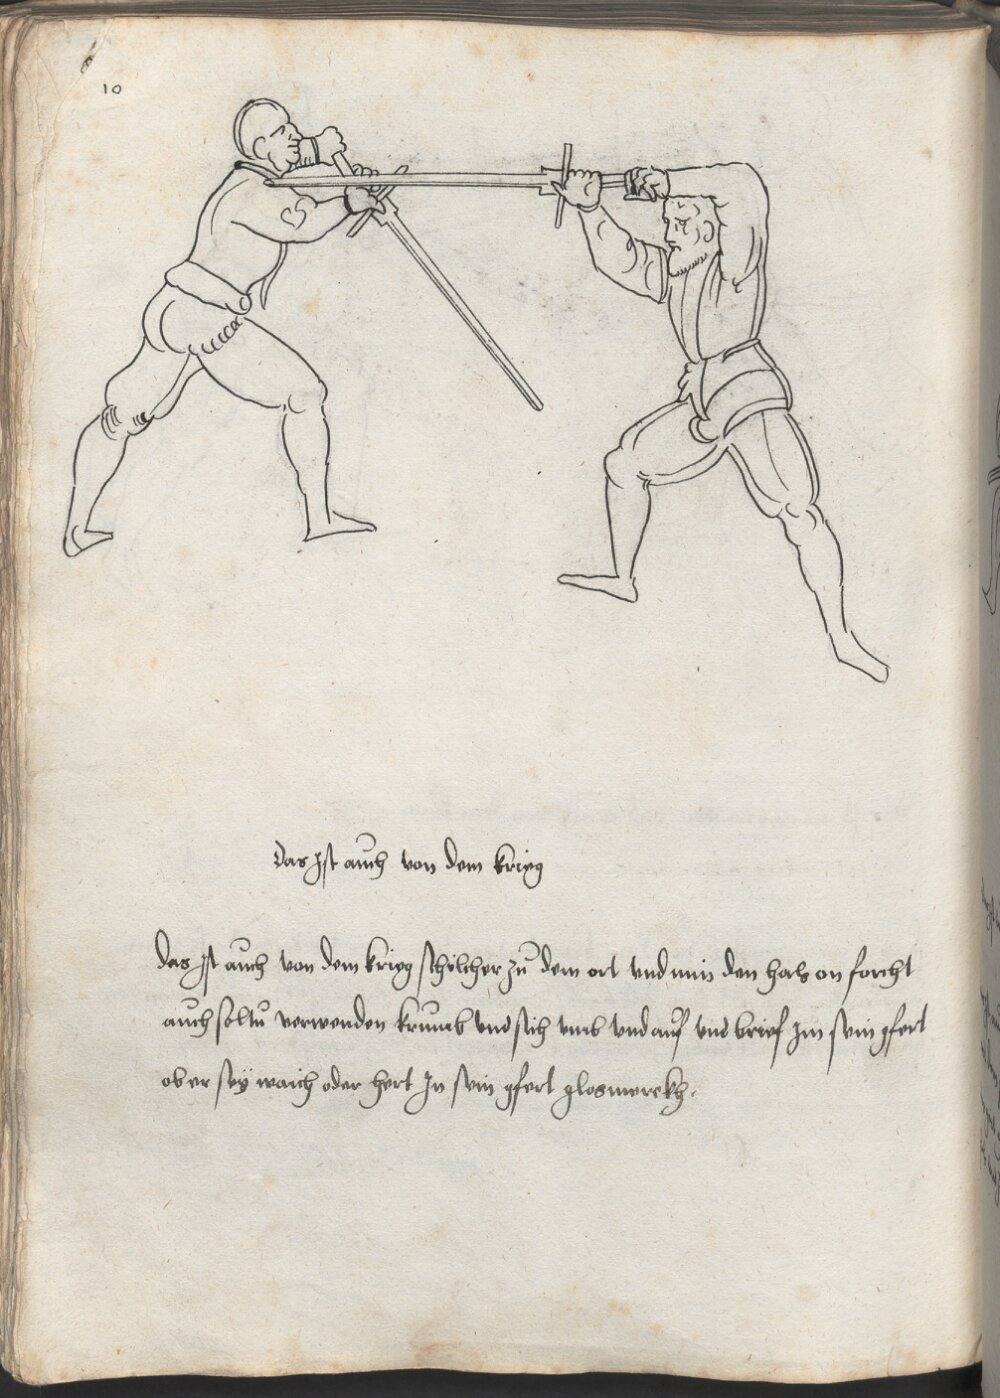 10
Das Ist auch von dem krieg
Das Ist auch von dem krieg schilcher zu dem ort vnd nim den hals on forcht
auch soltu verwenden krumb vnd stich vmb vnd auf vnd brief Im sein gfert
ob er sey waich oder hert In sein gfert glosmerckh.